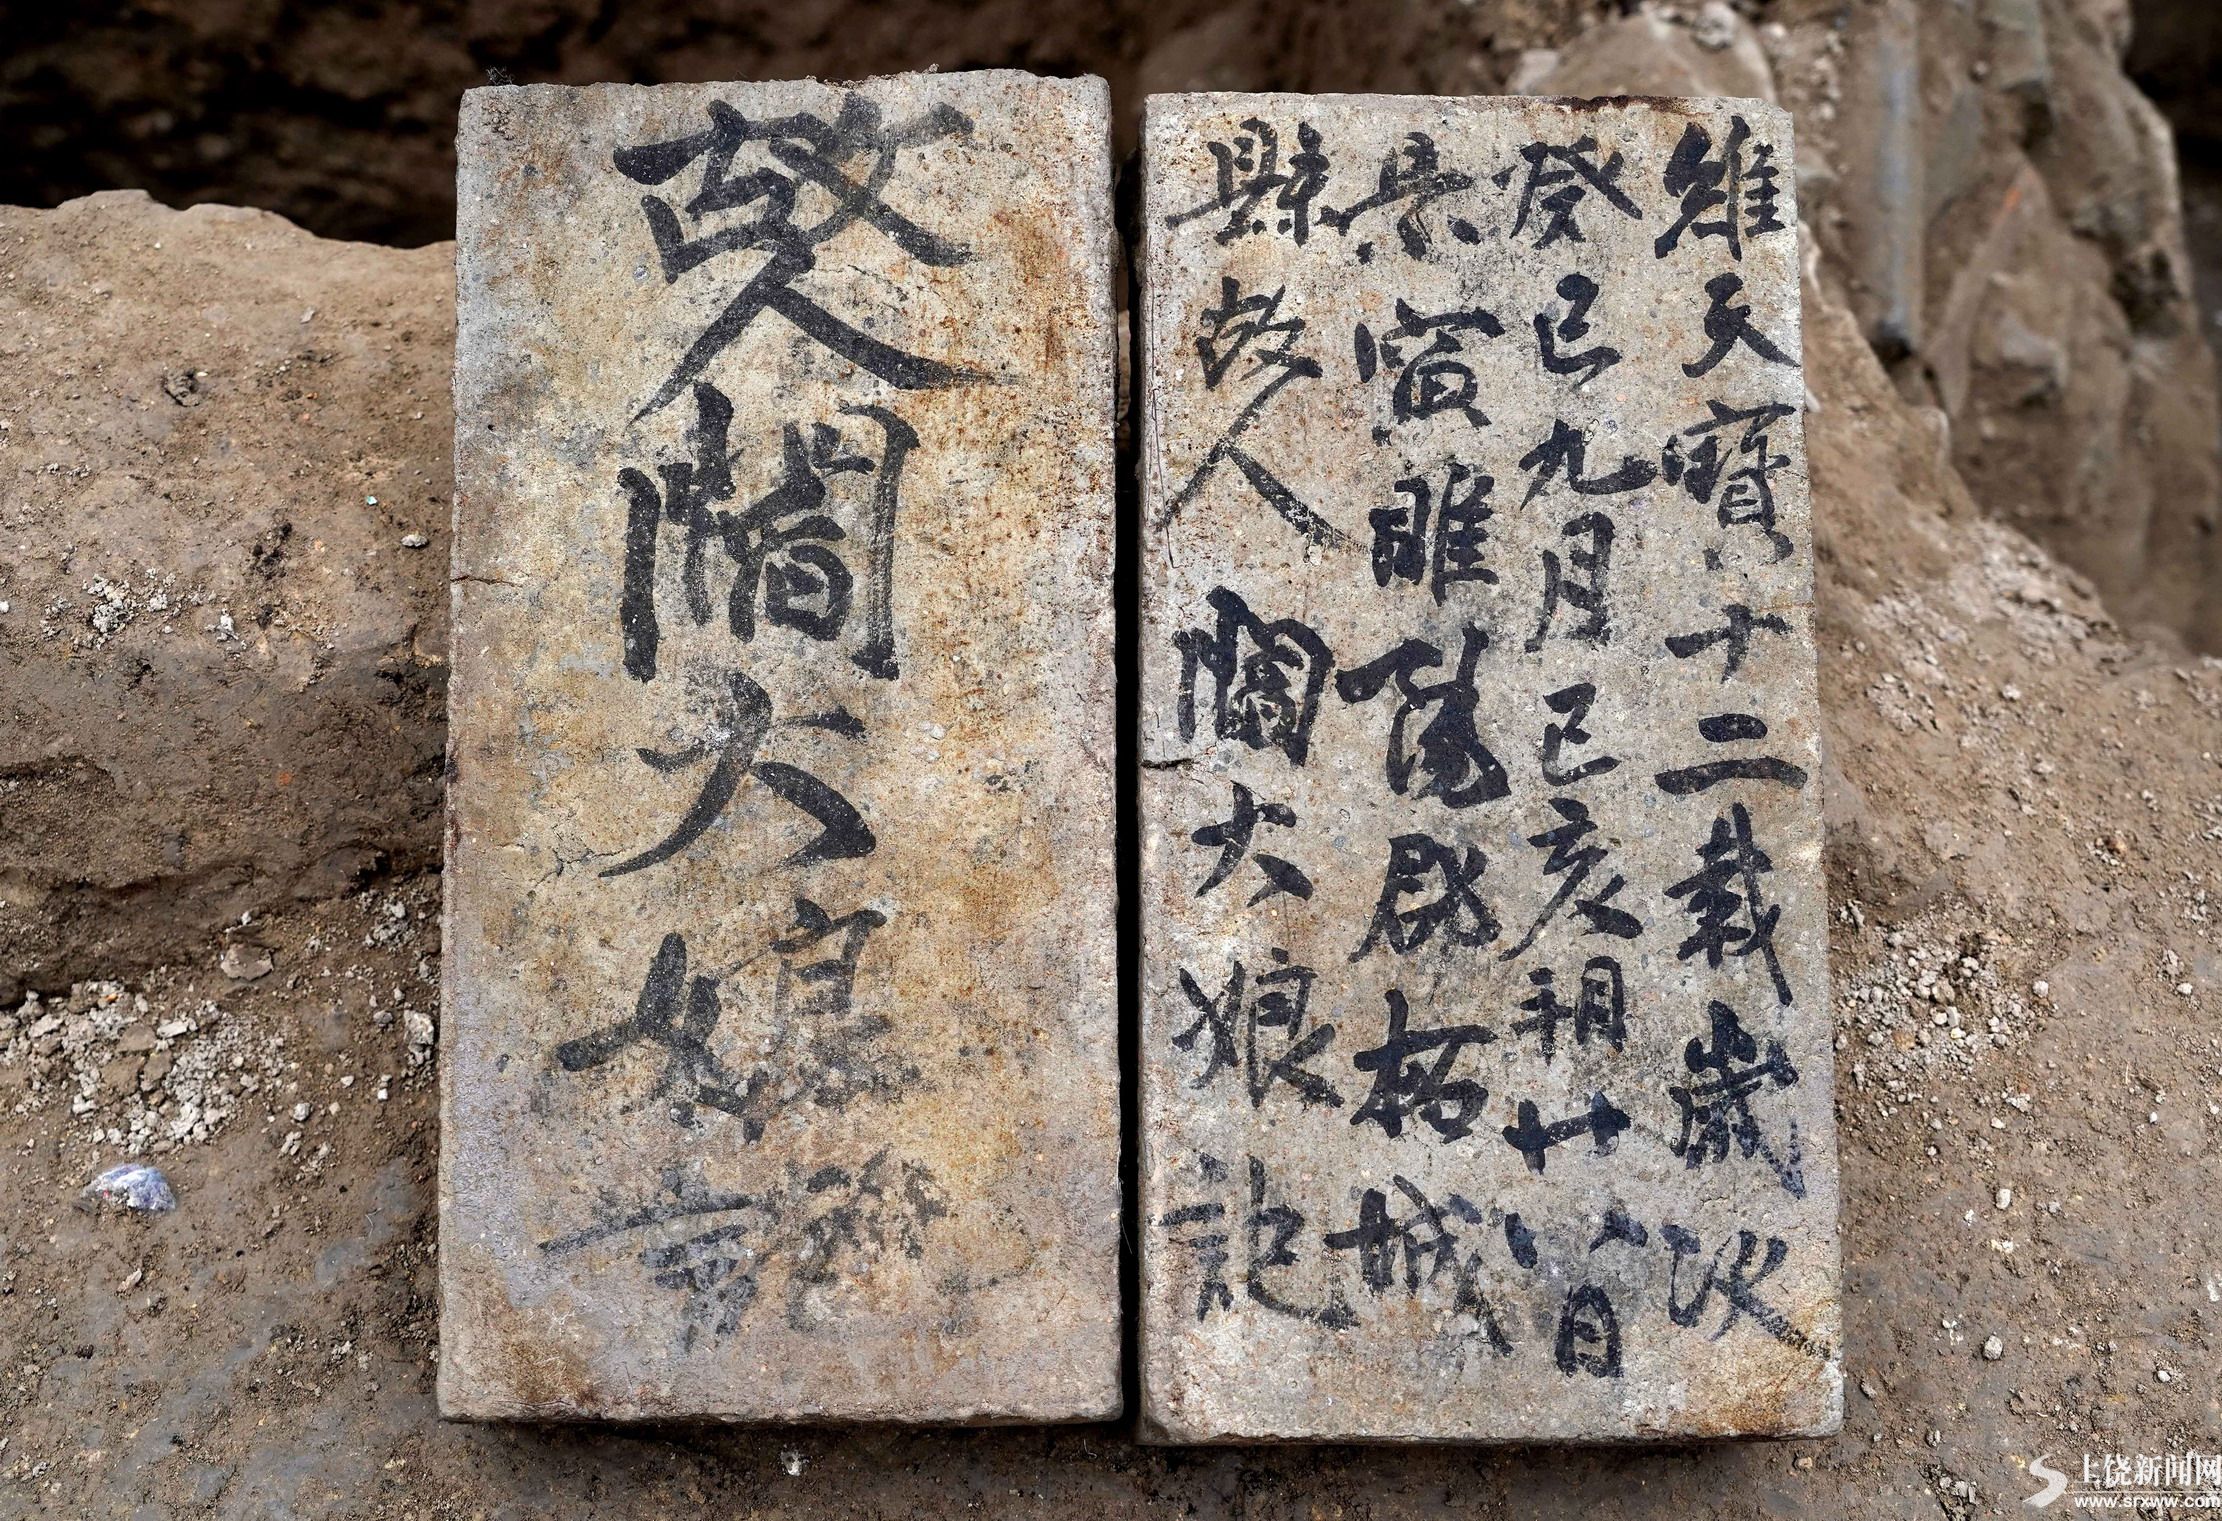 維天寶十二載歲次
癸巳九月己亥朔廿八日
景寅睢陽郡柘城
縣故人閻大娘記
故人閻大娘
上饶新闻网
www.srxww.com